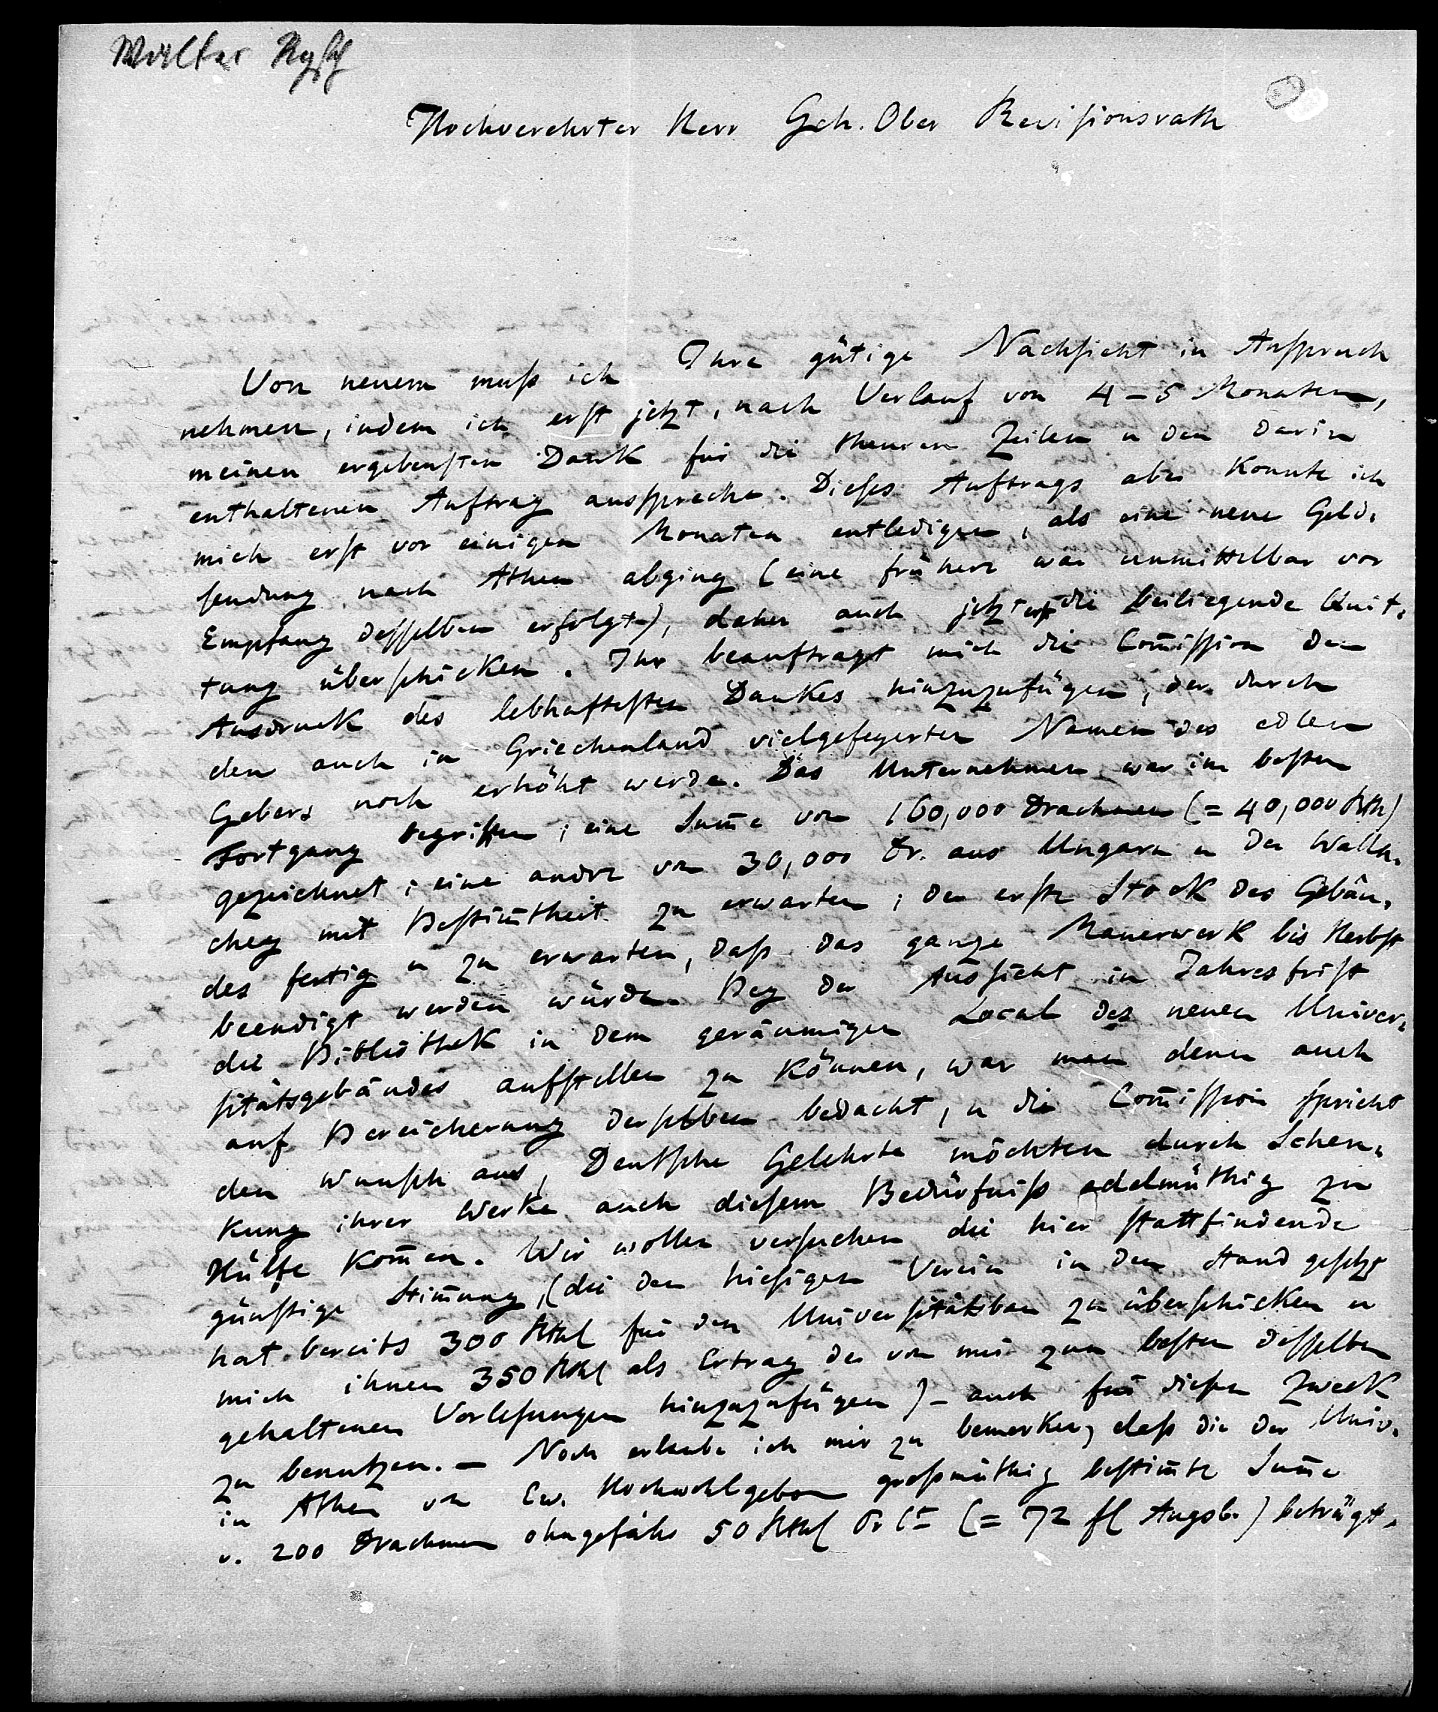 Walter
Hochverehrter Herr Geh. Ober Revisionsrath
Von neuem muß ich Ihre gütige Nachsicht in Anspruch
nehmen, indem ich erst jetzt, nach Verlauf von 4–5 Monaten,
meinen ergebensten Dank für die theuren Zeilen u den darin
enthaltenen Auftrag ausspreche. Dieses Auftrags aber konnte ich
mich erst vor einigen Monaten entledigen, als eine neue Geld-
sendung nach Athen abging (eine frühere war unmittelbar vor
Empfang desselben erfolgt), daher auch jetzt erst die beiliegende Quit-
tung überschicken. Ihr beauftragt mich die Com̄ission den
Ausdruck des lebhaftesten Dankes hinzuzufügen, der durch
den auch in Griechenland vielgefeyerten Namen des edlen
Gebers noch erhöht werde. Das Unternehmen war im besten
Fortgang begriffen; eine Sum̄e von 160,000 Drachmen (= 40,000 Rth)
gezeichnet; eine andre von 30,000 Dr. aus Ungarn u der Walla-
chey mit Bestim̄theit zu erwarten; der erste Stock des Gebäu-
des fertig u zu erwarten, daß das ganze Mauerwerk bis Herbst
beendigt werden würde. Bey der Aussicht in Jahresfrist
die Bibliothek in dem geräumigen Local des neuen Univer-
sitätsgebäudes aufstellen zu können, war man denn auch
auf Bereicherung derselben bedacht, u die Com̄ission spricht
den Wunsch aus, Deutsche Gelehrte möchten durch Schen-
kung ihrer Werke auch diesem Bedürfniß edelmüthig zu
Hülfe kom̄en. Wir wollen versuchen die hier stattfindende
günstige Stim̄ung, (die den hiesigen Verein in den Stand gesetzt
hat bereits 300 Rthl für den Universitätsbau zu überschicken u
mich ihnen 350 Rthl als Ertrag der von mir zum besten desselben
gehaltenen Vorlesungen hinzuzufügen) – auch für diesen Zweck
zu benutzen. – Noch erlaube ich mir zu bemerken, daß die der Univ.
in Athen von Ew. Hochwohlgebor großmüthig bestim̄te Sum̄e
v. 200 Drachmen ohngefähr 50 Rthl Pr Ct (= 72 fl Augsb.) beträgt.